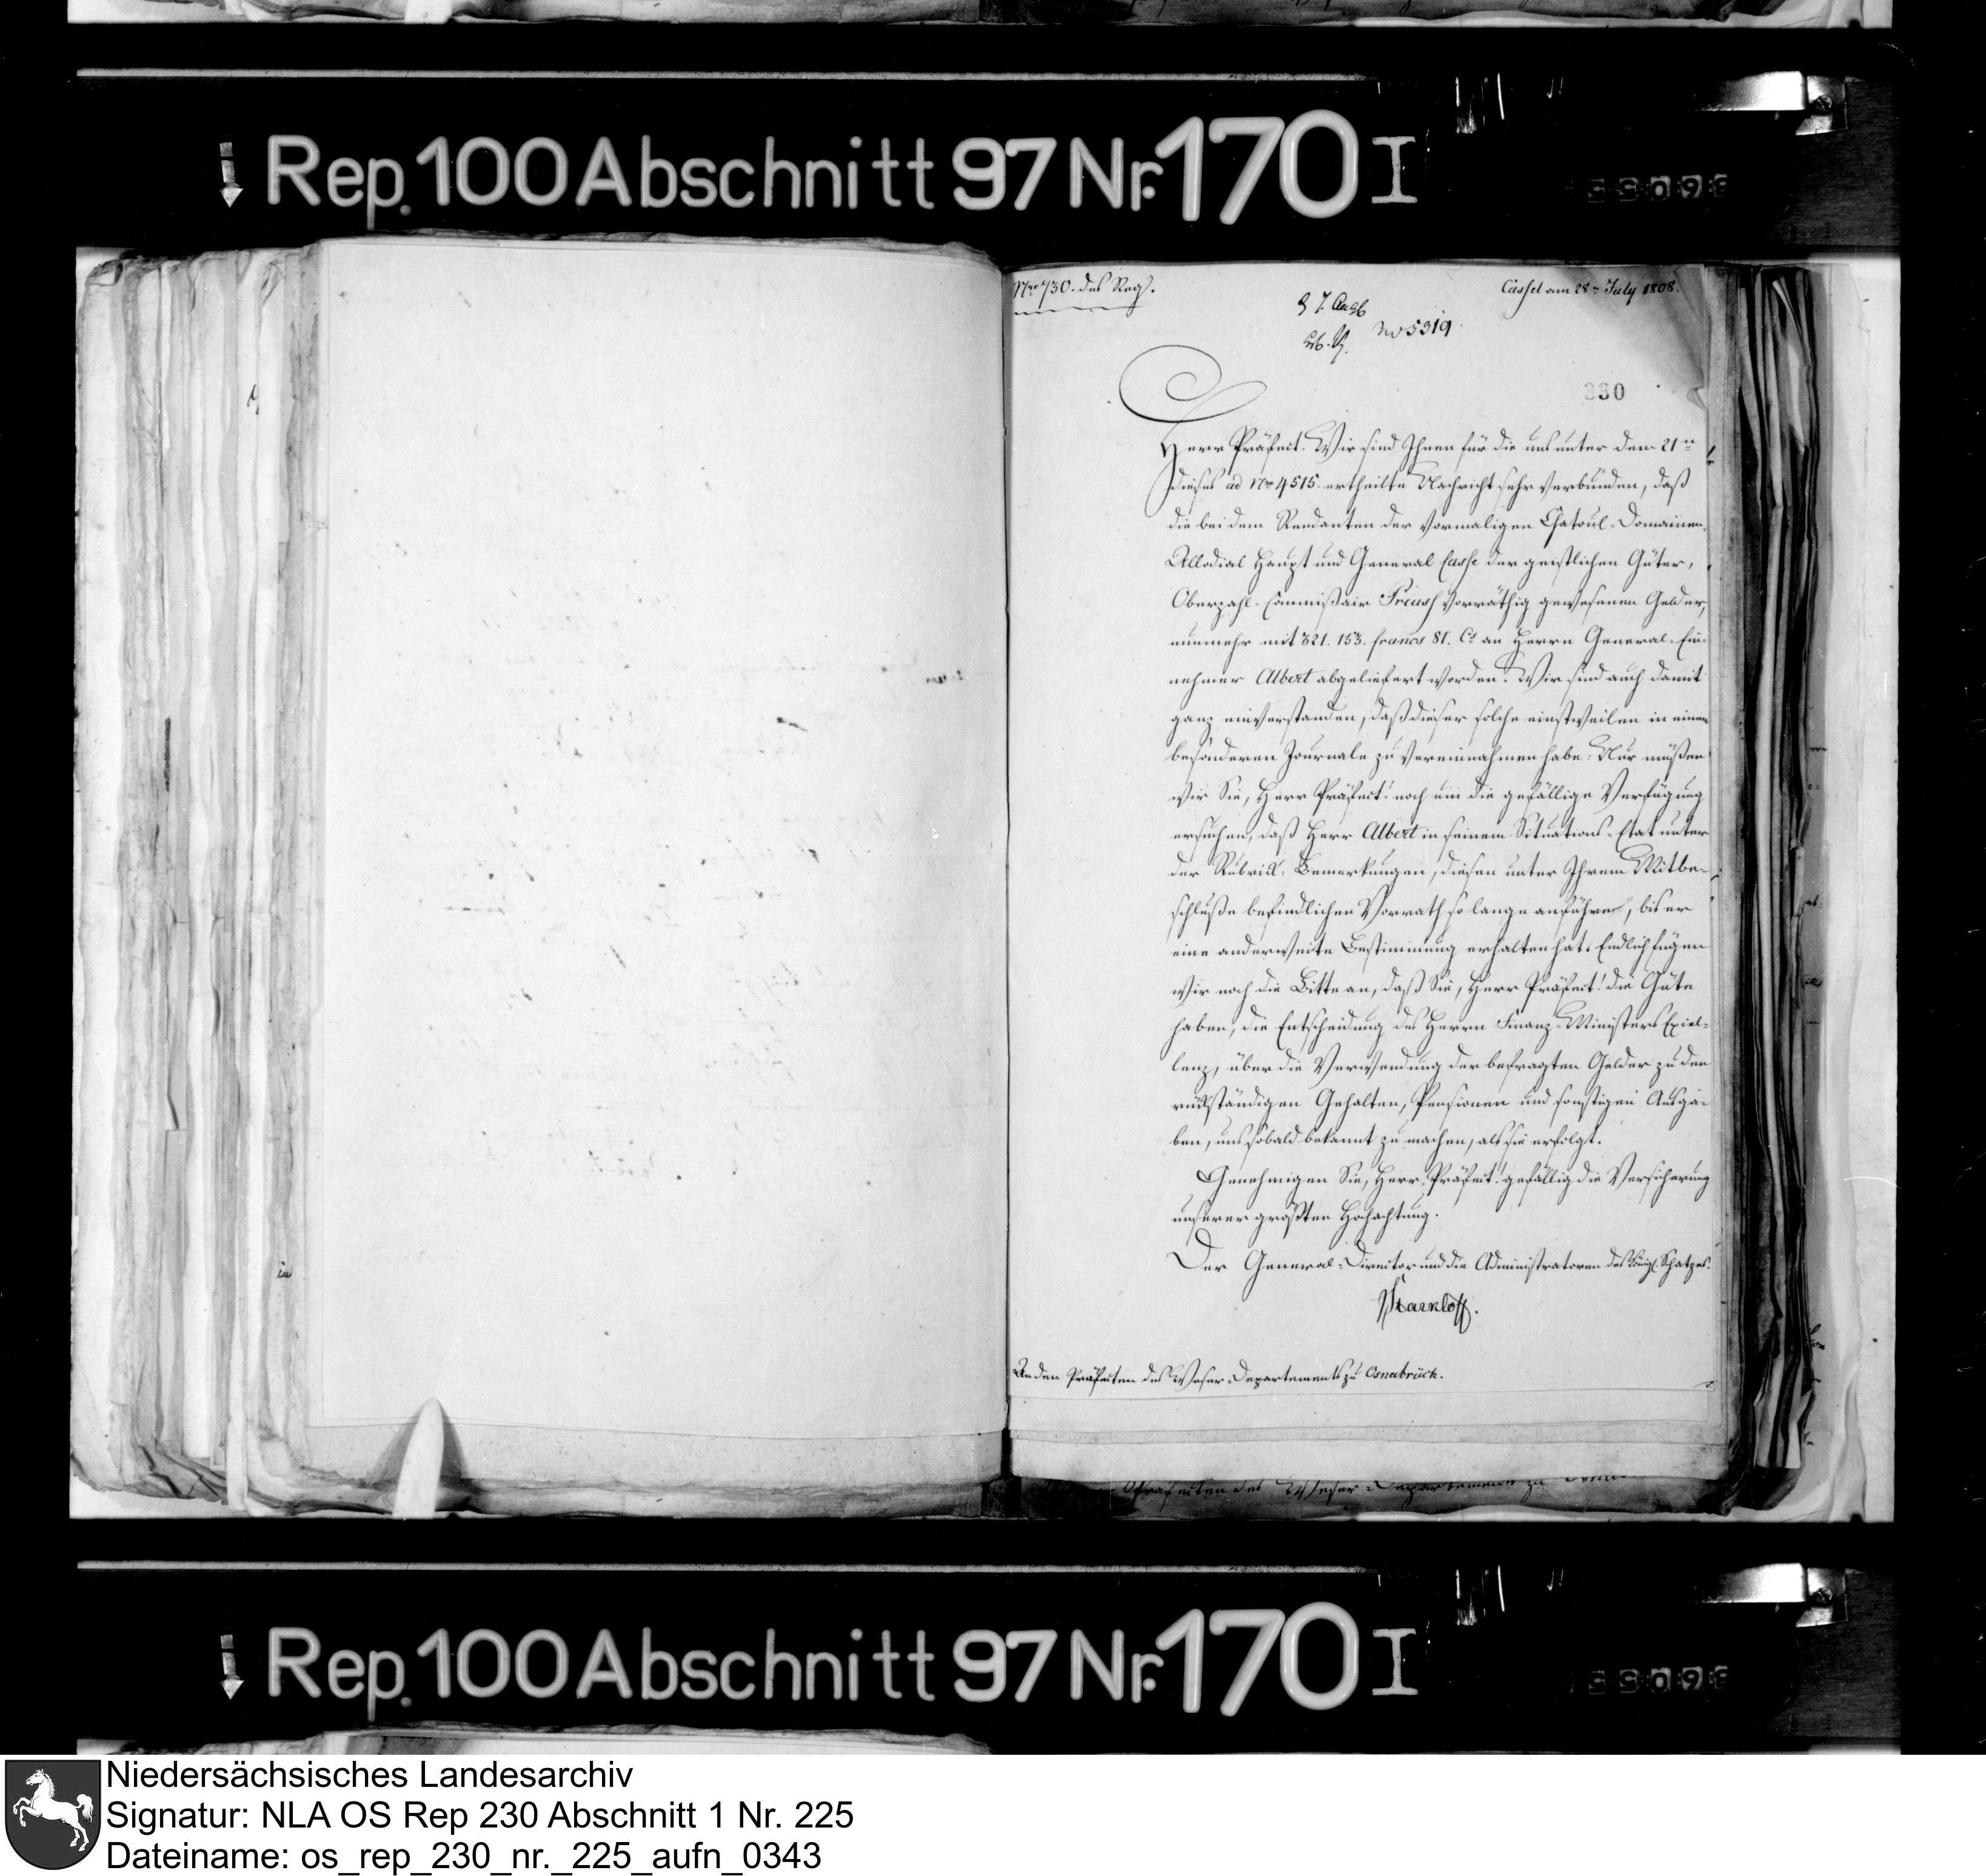 Rep. 100 Abschnitt 97 Nr. 170 I
Nro 730. des Reg.
Cassel am 28ten July 1808.
No 5319
330
Herr Präfect! Wir sind Ihnen für die uns unter dem 21n
dieses ad No 4515. ertheilte Nachricht sehr verbunden, daß
die bei dem Rendanten der vormaligen Chatoul-Domainen-
Allodial Haupt und General Casse der geistlichen Güter,
Oberzahl-Commißair Preuss vorräthig gewesenen Gelder,
nunmehr mit 321. 153. francs 81. Cs an Herrn General-Ein-
nehmer Albert abgeliefert worden. Wir sind auch damit
ganz einverstanden, daß dieser solche einstweilen in einem
besonderen Journale zu vereinnahmen habe. Nur müßen
wir Sie, Herr Präfect! noch um die gefällige Verfügung
ersuchen, daß Herr Albert in seinem Situations-Etat unter
der Rubrick: Bemerkungen, diesen unter Ihrem Mitbe-
schluße befindlichen Vorrath so lange anführe, bis er
eine anderweite Bestimmung erhalten hat. Endlich fügen
wir noch die Bitte an, daß Sie, Herr Präfect! die Güte
haben, die Entscheidung des Herrn Finanz-Ministers Excel-
lenz, über die Verwendung der befragten Gelder zu den
rückständigen Gehalten, Pensionen und sonstigen Ausga-
ben, uns sobald bekannt zu machen, als sie erfolgt.
Genehmigen Sie, Herr Präfect! gefällig die Versicherung
unserer größten Hochachtung.
Der General-Director und die Administratoren des Königl. Schatzes.
Starkloff.
An den Präfecten des Weser-Departements zu Osnabrück.
Präfecten des Weser-Departements zu
Rep. 100 Abschnitt 97 Nr. 170 I
Niedersächsisches Landesarchiv
Signatur: NLA OS Rep 230 Abschnitt 1 Nr. 225
Dateiname: os_rep_230_nr._225_aufn_0343